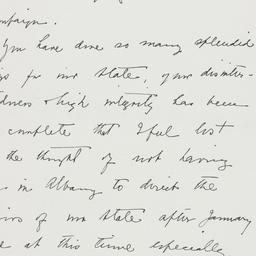 mpaign.
You have done so many splendid
gs for our State, your disinter-
edness & high integrity has been
complete that I feel lost
the thought of not having
in Albany to direct the
airs of our State after January
e at this time especially